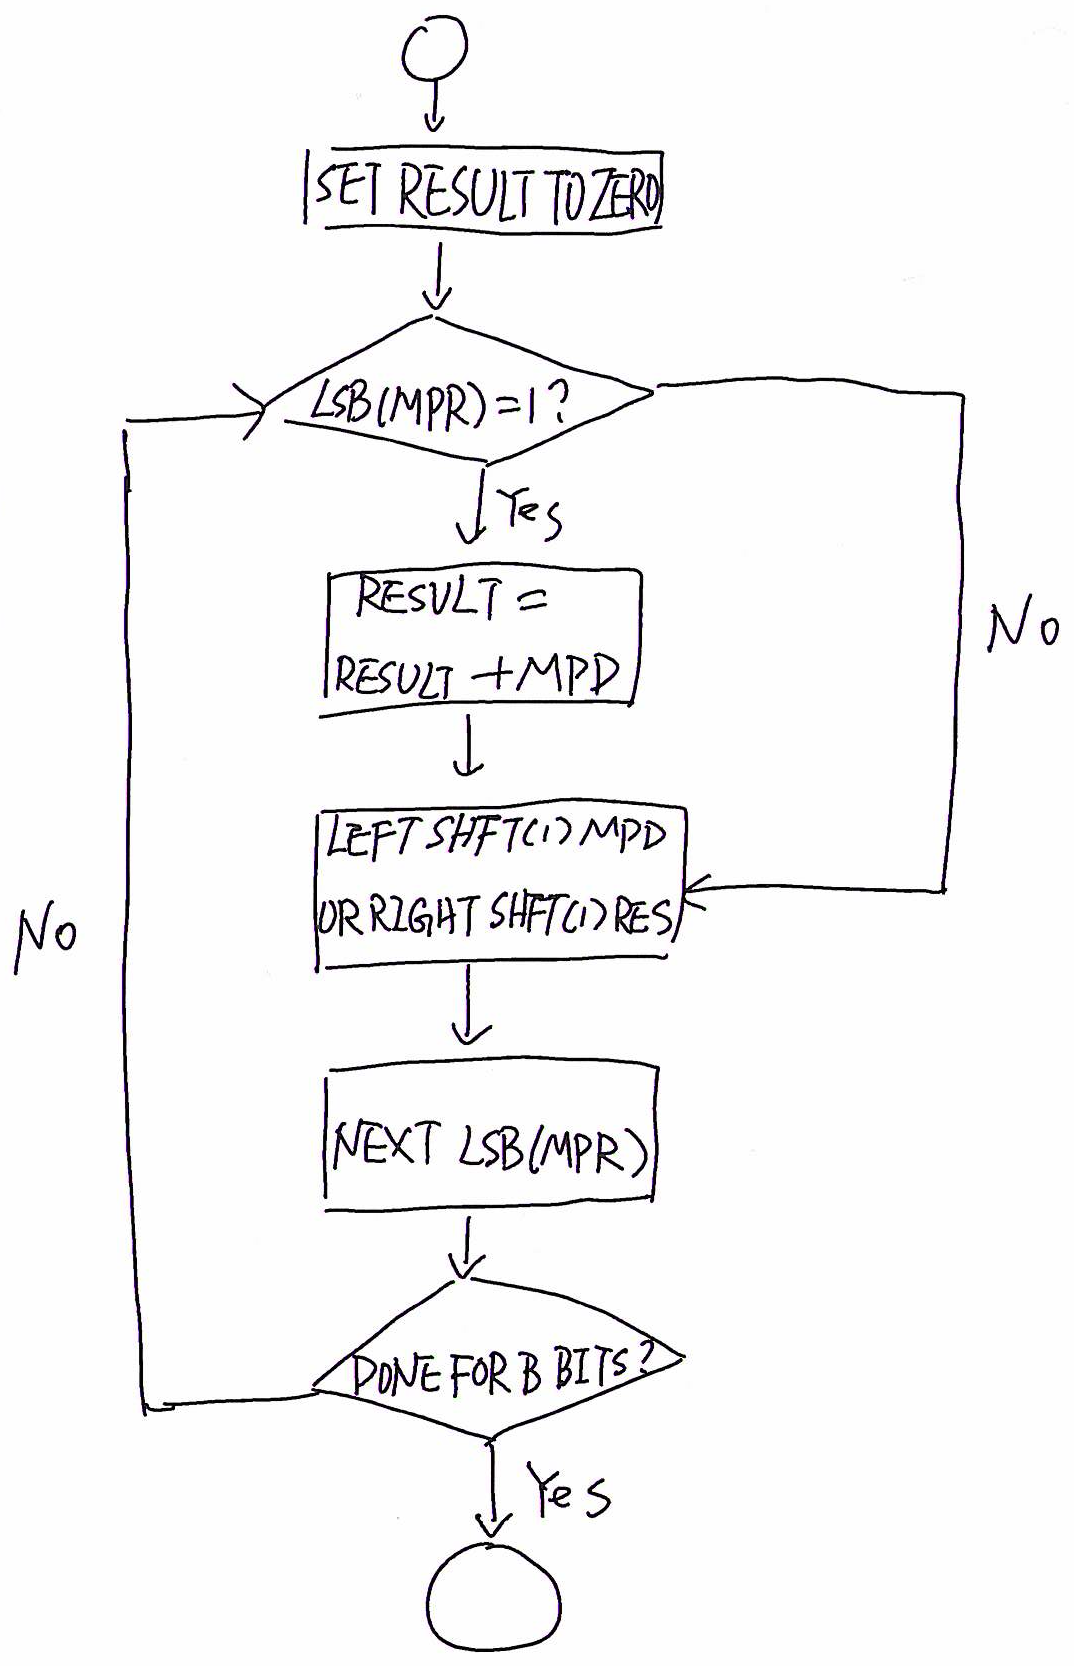 SET RESULT TO ZERO
LSB(MPR)=1?
Yes
RESULT =
RESULT +MPD
No
LEFT SHFT(1) MPD
OR RIGHT SHFT(1) RES
No
NEXT LSB(MPR)
DONE FOR B BITS?
Yes